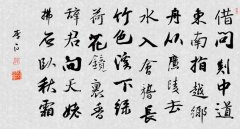 借問剡中道
東南指越鄉
舟從廣陵去
水入會稽長
竹色溪下綠
荷花鏡裏香
辭君向天姥
拂石臥秋霜